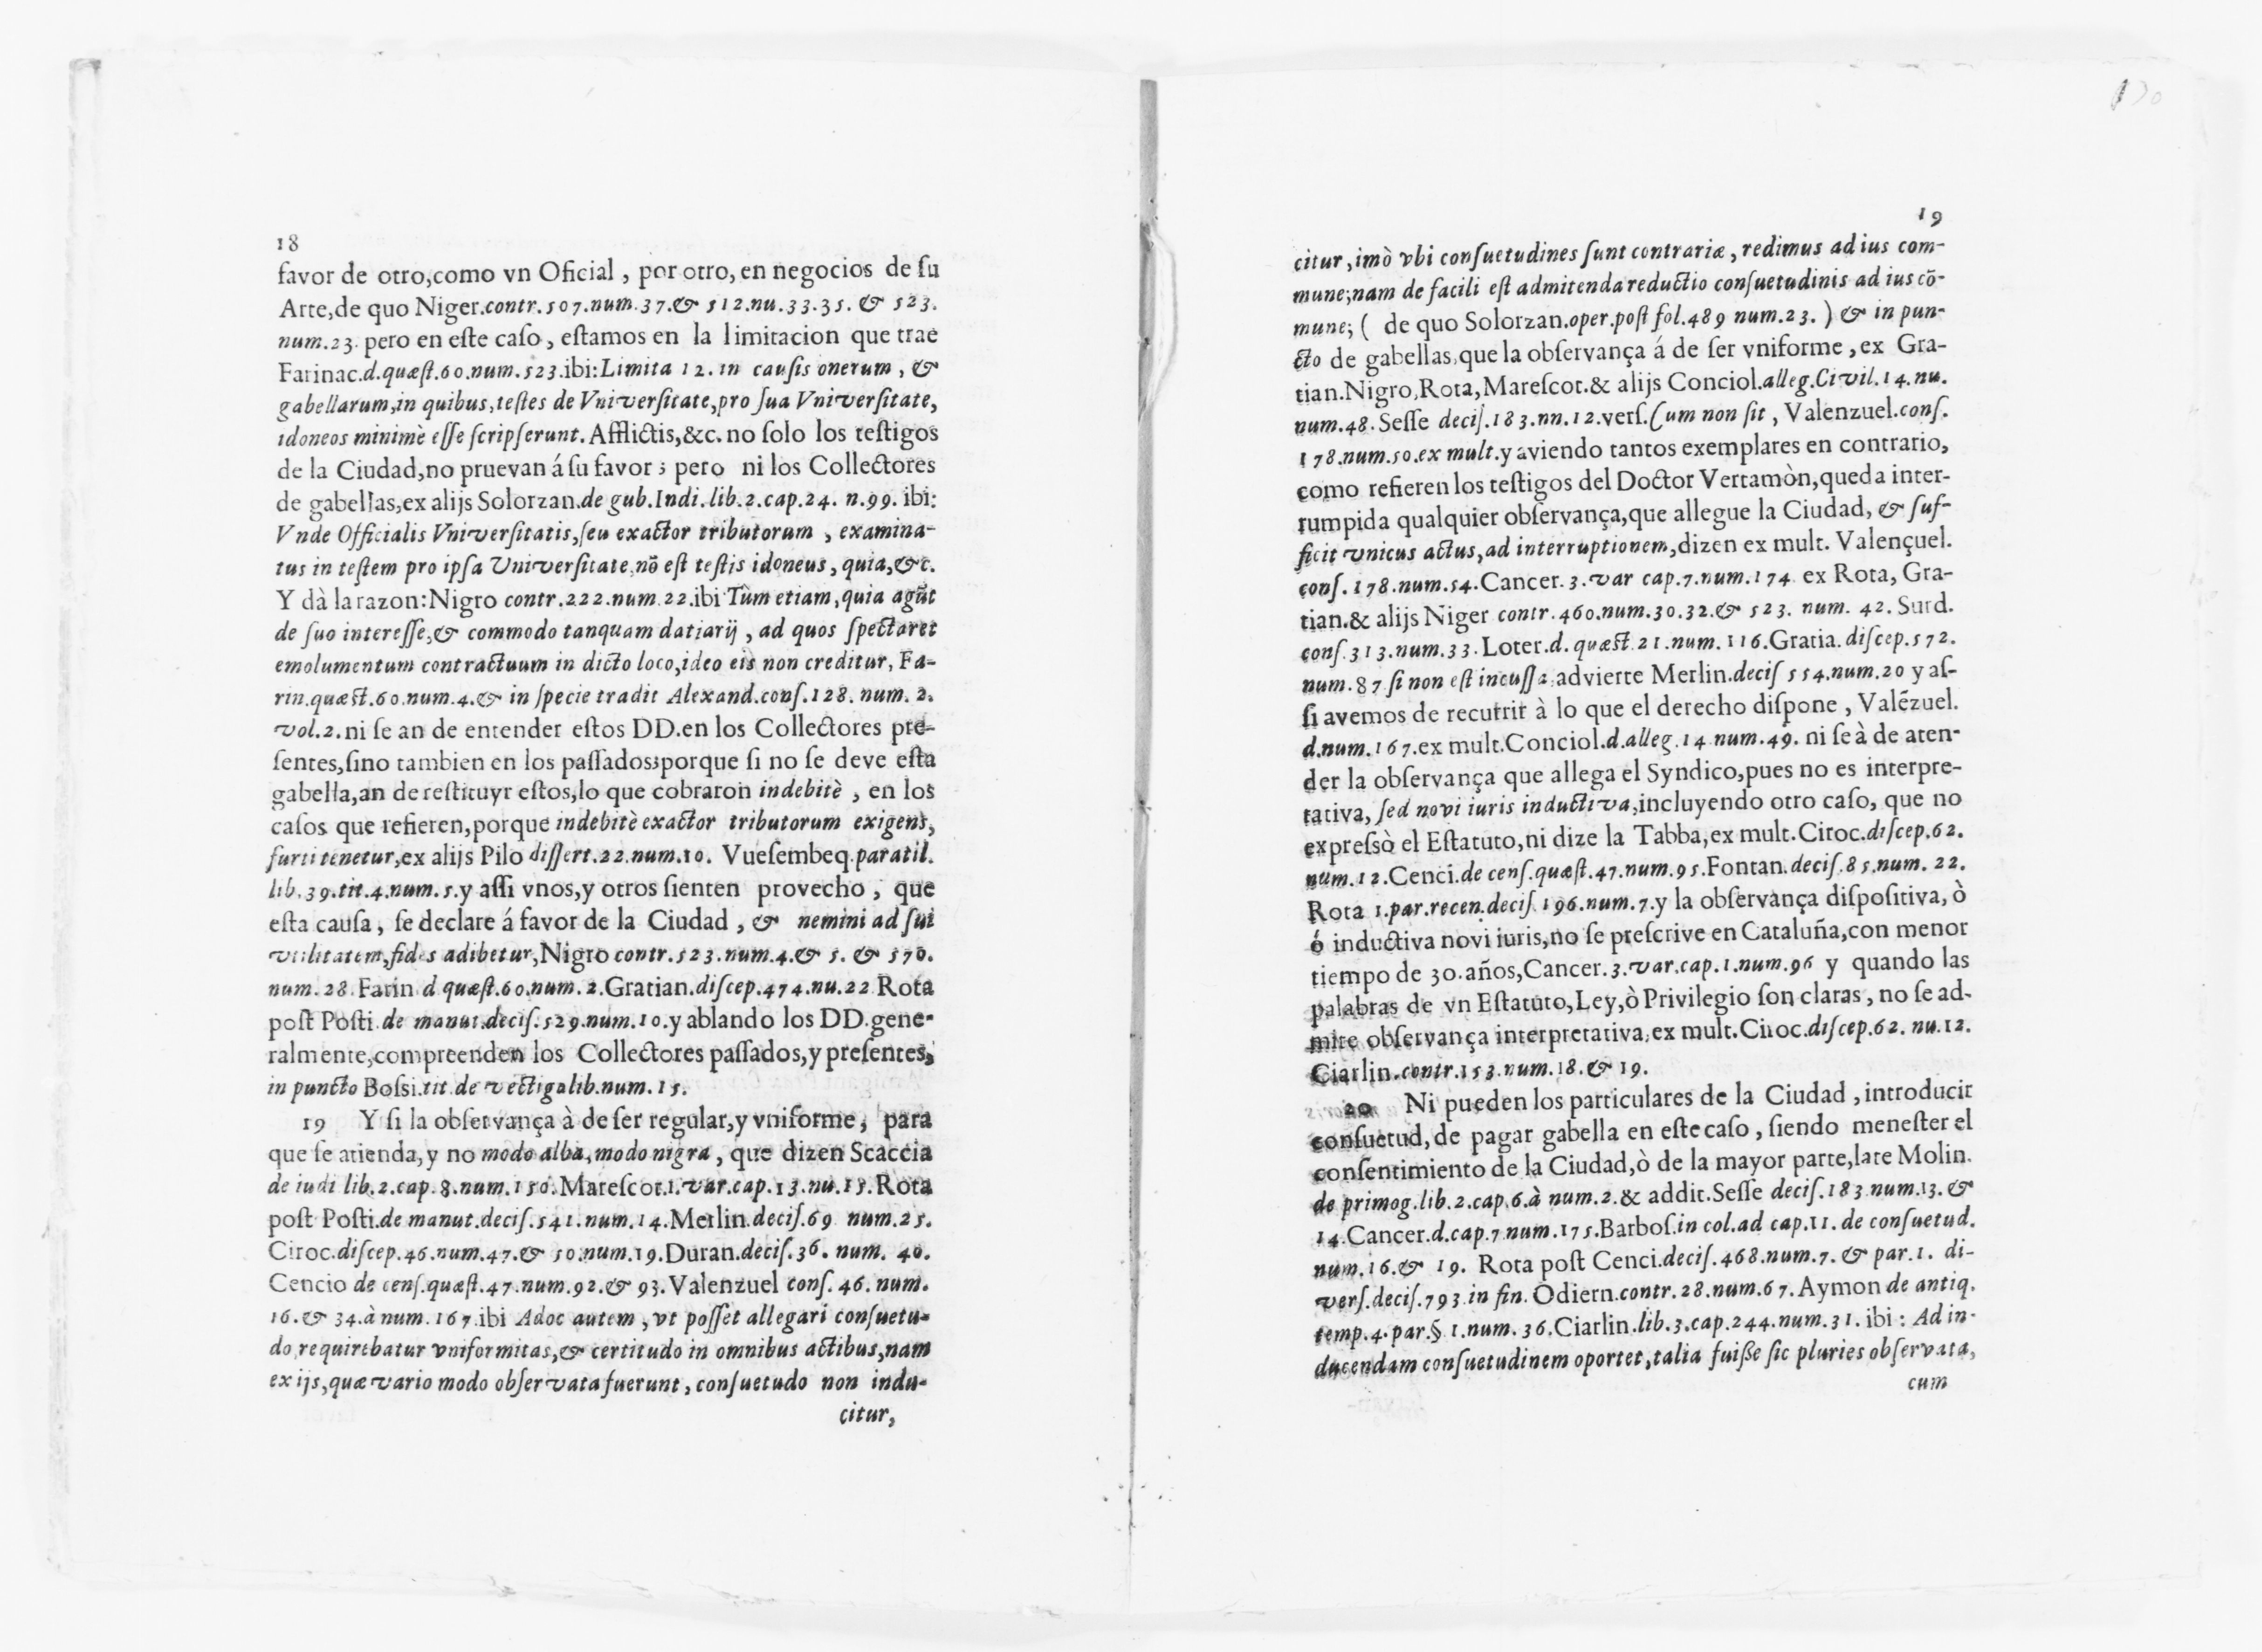 18
favor de otro,como vn Oficial , por otro, en negocios de ſu
Arte,de quo Niger.contr.507.num.37.& 512.nu.33.35. & 523.
num.23. pero en eſte caſo, eſtamos en la limitacion que trae
Farinac.d.quæſt.60.num.523.ibi:Limita 12. in cauſis onerum , &
gabellarum,in quibus,teſtes de Vniverſitate,pro ſua Vniverſitate,
idoneos minimè eſſe ſcripſerunt. Afflictis,&c. no ſolo los teſtigos
de la Ciudad,no pruevan á ſu favor ; pero ni los Collectores
de gabellas,ex alijs Solorzan.de gub.Indi.lib.2.cap.24. n.99. ibi:
Vnde Officialis Vniverſitatis,ſeu exactor tributorum , examina-
tus in teſtem pro ipſa Vniverſitate,nõ eſt teſtis idoneus, quia,&c.
Y dà la razon:Nigro contr.222.num.22.ibi Tûm etiam,quia agũt
de ſuo intereſſe,& commodo tanquam datiarij , ad quos ſpectaret
emolumentum contractuum in dicto loco,ideo eis non creditur, Fa-
rin.quæst.60.num.4.& in ſpecie tradit Alexand.conſ.128. num. 2.
vol.2. ni ſe an de entender eſtos DD.en los Collectores pre-
ſentes,ſino tambien en los paſſados;porque ſi no ſe deve eſta
gabella,an de reſtituyr eſtos,lo que cobraron indebitè , en los
caſos que refieren,porque indebitè exactor tributorum exigens,
furti tenetur,ex alijs Pilo diſſert.22.num.10. Vueſembeq.paratil.
lib.39.tit.4.num.5.y aſſi vnos,y otros ſienten provecho , que
eſta cauſa, ſe declare á favor de la Ciudad , & nemini ad ſui
vtilitatem,fides adibetur,Nigro contr.523.num.4.& 5. & 570.
num.28.Farin d quæſt.60.num.2.Gratian.diſcep.474.nu.22 Rota
poſt Poſti.de manut.deciſ.529.num.10.y ablando los DD.gene-
ralmente,compreenden los Collectores paſſados,y preſentes,
in puncto Boſsi.tit.de vectigalib.num.15.
19 Y ſi la obſervança à de ſer regular,y vniforme, para
que ſe atienda,y no modo alba,modo nigra, que dizen Scaccia
de iudi lib.2.cap.8.num.150.Mareſcot.1.var.cap.13.nu.15.Rota
poſt Poſti.de manut.deciſ.541.num.14.Merlin.deciſ.69 num.25.
Ciroc.diſcep.46.num.47.& 50.num.19.Duran.deciſ.36. num. 40.
Cencio de cenſ.quæſt.47.num.92.& 93.Valenzuel conſ.46. num.
16.& 34.à num.167.ibi Adoc autem , vt poſſet allegari conſuetu-
do,requirebatur vniformitas,& certitudo in omnibus actibus,nam
ex ijs,quæ vario modo obſervata fuerunt, conſuetudo non indu-
citur,
19
citur,imò vbi conſuetudines ſunt contrariæ, redimus ad ius com-
mune;nam de facili eſt admitenda reductio conſuetudinis ad ius cõ-
mune; ( de quo Solorzan.oper.poſt fol.489 num.23. ) & in pun-
cto de gabellas,que la obſervança á de ſer vniforme, ex Gra-
tian.Nigro,Rota,Mareſcot.& alijs Conciol.alleg.Civil.14.nu.
num.48.Seſſe deciſ.183.nn.12.verſ.Cum non ſit , Valenzuel.conſ.
178.num.50.ex mult.y aviendo tantos exemplares en contrario,
como refieren los teſtigos del Doctor Vertamòn,queda inter-
rumpida qualquier obſervança,que allegue la Ciudad, & ſuf-
ficit vnicus actus,ad interruptionem,dizen ex mult. Valençuel.
conſ. 178.num.54.Cancer.3.var cap.7.num.174 ex Rota, Gra-
tian.& alijs Niger contr.460.num.30.32.& 523. num. 42. Surd.
conſ.313.num.33.Loter.d.quæst.21.num.116.Gratia.diſcep.572.
num.87 ſi non eſt incuſſa,advierte Merlin.deciſ 554.num.20 y aſ-
ſi avemos de recurrir à lo que el derecho diſpone , Valẽzuel.
d.num.167.ex mult.Conciol.d.alleg.14 num.49. ni ſe à de aten-
der la obſervança que allega el Syndico,pues no es interpre-
tativa, ſed novi iuris inductiva,incluyendo otro caſo, que no
expreſsò el Eſtatuto,ni dize la Tabba,ex mult.Ciroc.diſcep.62.
num.12.Cenci.de cenſ.quæſt.47.num.95.Fontan.deciſ.85.num. 22.
Rota 1.par.recen.deciſ.196.num.7.y la obſervança diſpoſitiva, ò
ó inductiva novi iuris,no ſe preſcrive en Cataluña,con menor
tiempo de 30.años,Cancer.3.var.cap.1.num.96 y quando las
palabras de vn Eſtatuto,Ley,ò Privilegio ſon claras, no ſe ad-
mite obſervança interpretativa,ex mult.Ciroc.diſcep.62. nu.12.
Ciarlin.contr.153.num.18.& 19.
20 Ni pueden los particulares de la Ciudad , introducir
conſuetud,de pagar gabella en eſte caſo, ſiendo meneſter el
conſentimiento de la Ciudad,ò de la mayor parte,late Molin.
de primog.lib.2.cap.6.à num.2.& addit.Seſſe deciſ.183 num.13.&
14.Cancer.d.cap.7 num.175.Barboſ.in col.ad cap.11. de conſuetud.
num.16.& 19. Rota poſt Cenci.deciſ.468.num.7. & par.1. di-
verſ.deciſ.793.in fin. Odiern.contr.28.num.67.Aymon de antiq.
temp.4.par.§.1.num.36.Ciarlin.lib.3.cap.244.num.31.ibi : Ad in-
ducendam conſuetudinem oportet,talia fuiße ſic pluries obſervata,
cum